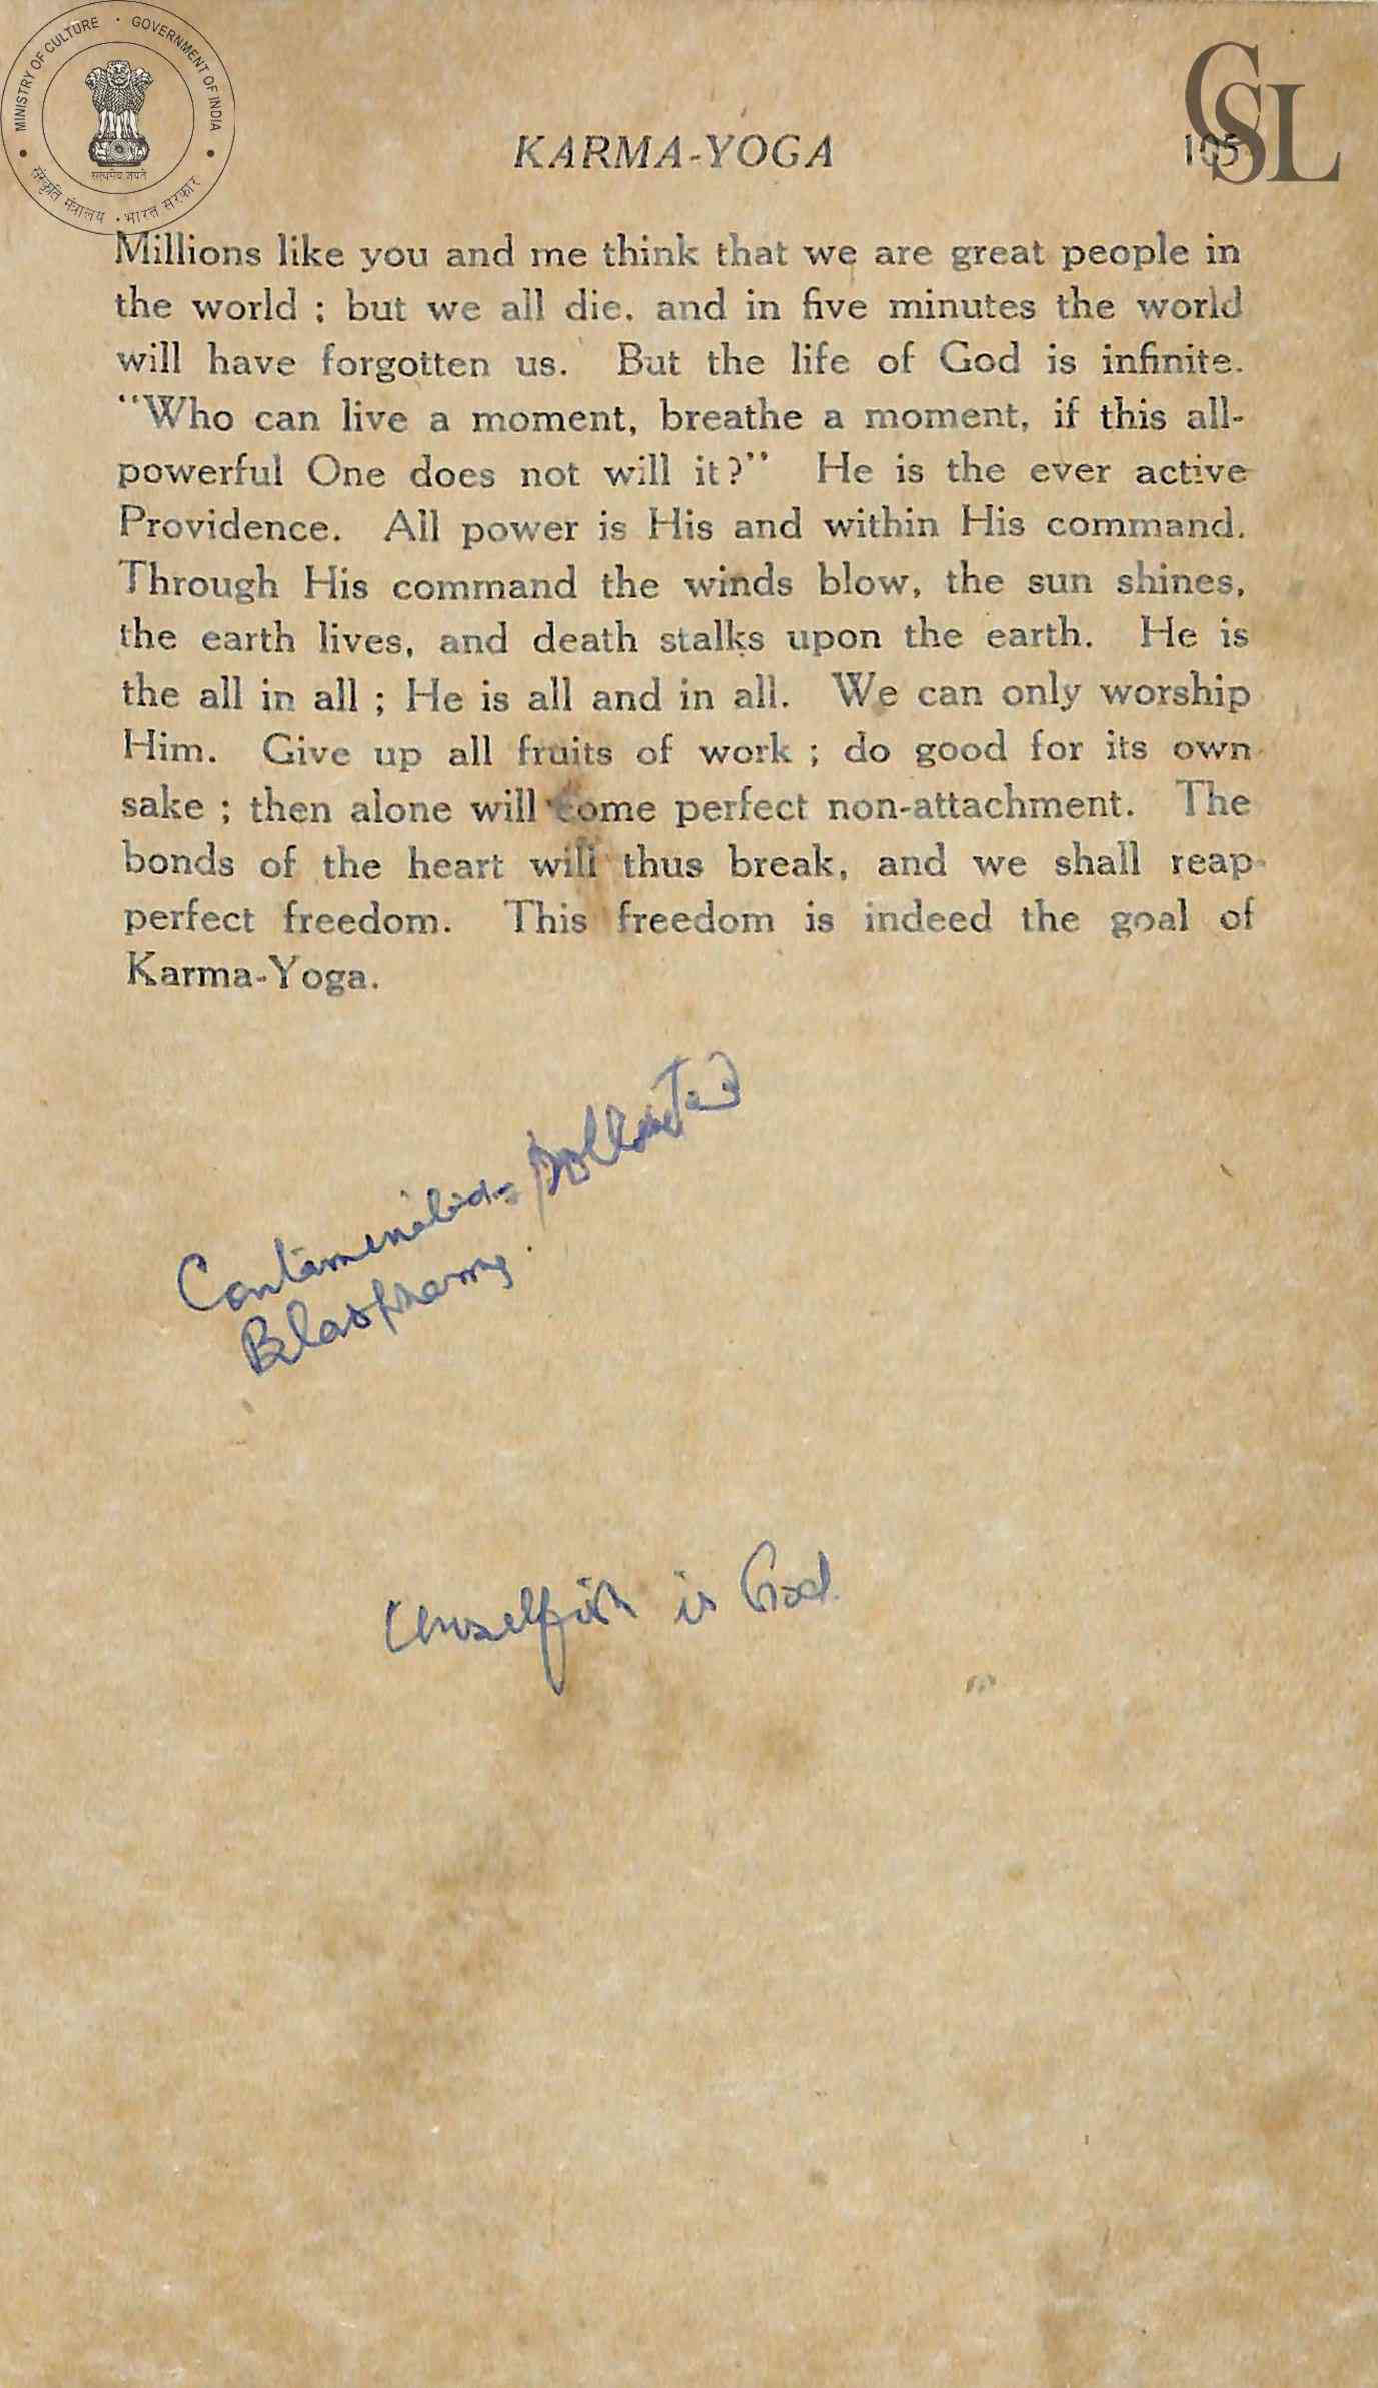 MINISTRY OF CULTURE • GOVERNMENT OF INDIA
सत्यमेव जयते
संस्कृति मंत्रालय • भारत सरकार
CSL
KARMA-YOGA 105
Millions like you and me think that we are great people in
the world ; but we all die. and in five minutes the world
will have forgotten us. But the life of God is infinite.
"Who can live a moment, breathe a moment, if this all-
powerful One does not will it?" He is the ever active
Providence. All power is His and within His command.
Through His command the winds blow, the sun shines,
the earth lives, and death stalks upon the earth. He is
the all in all ; He is all and in all. We can only worship
Him. Give up all fruits of work ; do good for its own
sake ; then alone will come perfect non-attachment. The
bonds of the heart will thus break, and we shall reap
perfect freedom. This freedom is indeed the goal of
Karma-Yoga.
Blasphamy.
Unselfish is God.